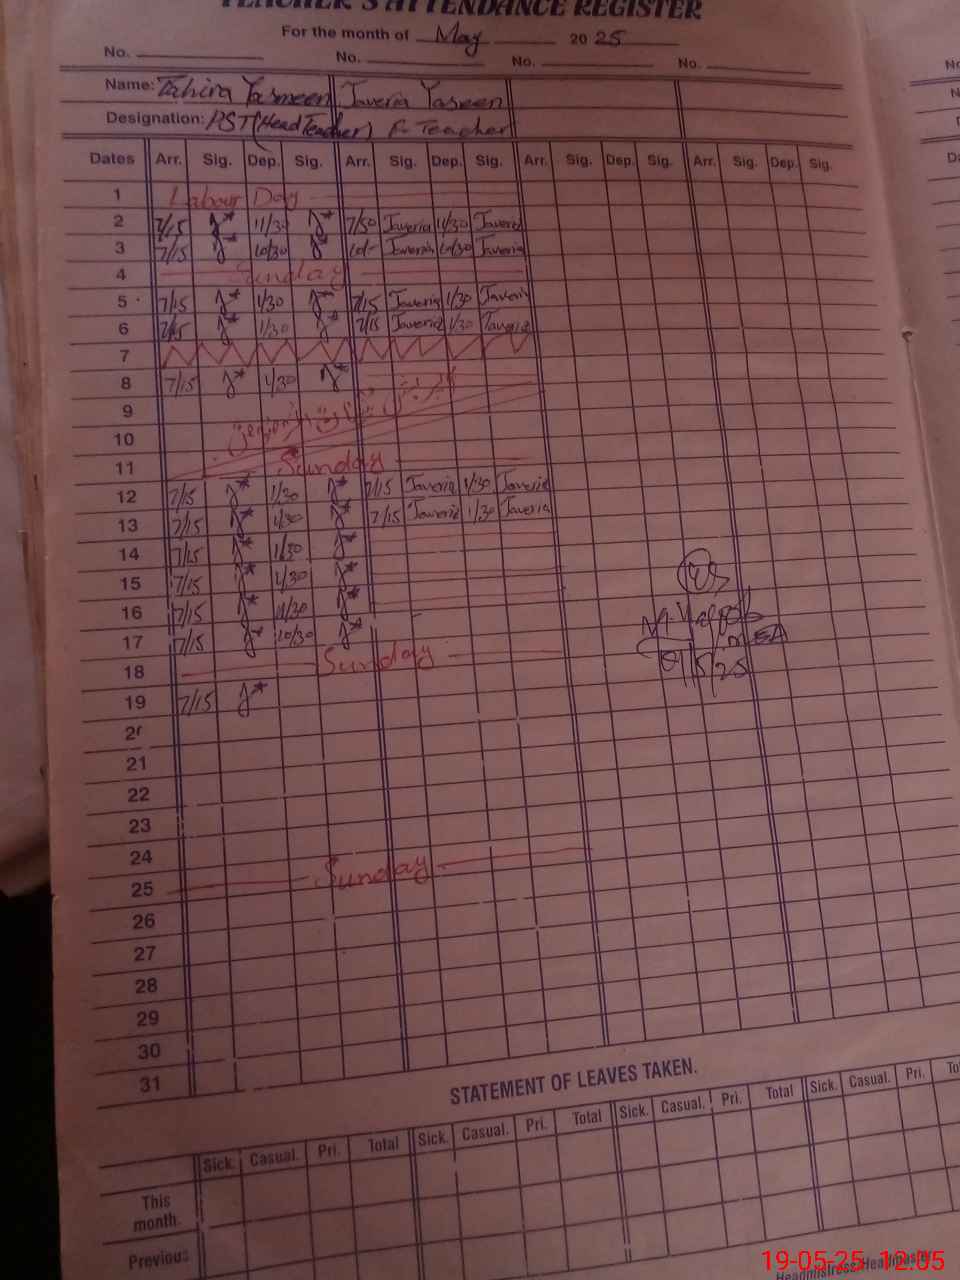 TEACHER'S ATTENDANCE REGISTER
For the month of May 2025
No. No. No. No.
Name: Tahira Yasmeen Javeria Yasmeen
Designation: PST (Head Teacher) F-Teacher
Dates Arr. Sig. Dep. Sig. Arr. Sig. Dep. Sig. Arr. Sig. Dep. Sig. Arr. Sig. Dep. Sig.
1 Labour Day
2 7/15 11/30 7/50 Javeria 11/30 Javeria
3 7/15 10/30 Javeria 10/30 Javeria
4 Sunday
5 7/15 1/30 7/15 Javeria 1/30 Javeria
6 7/15 1/30 7/15 Javeria 1/30 Javeria
7
8 7/15 1/30
9
10
11 Sunday
12 7/15 1/30 7/15 Javeria 1/30 Javeria
13 7/15 1/30 7/15 Javeria 1/30 Javeria
14 7/15 1/30
15 7/15 1/30
16 7/15 11/30
17 7/15 10/30
18 Sunday
19 7/15
20
21
22
23
24
25 Sunday
26
27
28
29
30
31
STATEMENT OF LEAVES TAKEN.
Sick. Casual. Pri. Total Sick. Casual. Pri. Total Sick. Casual. Pri. Total Sick. Casual. Pri.
This month.
Previous
Headmistress/Headmaster
19-05-25 12:05